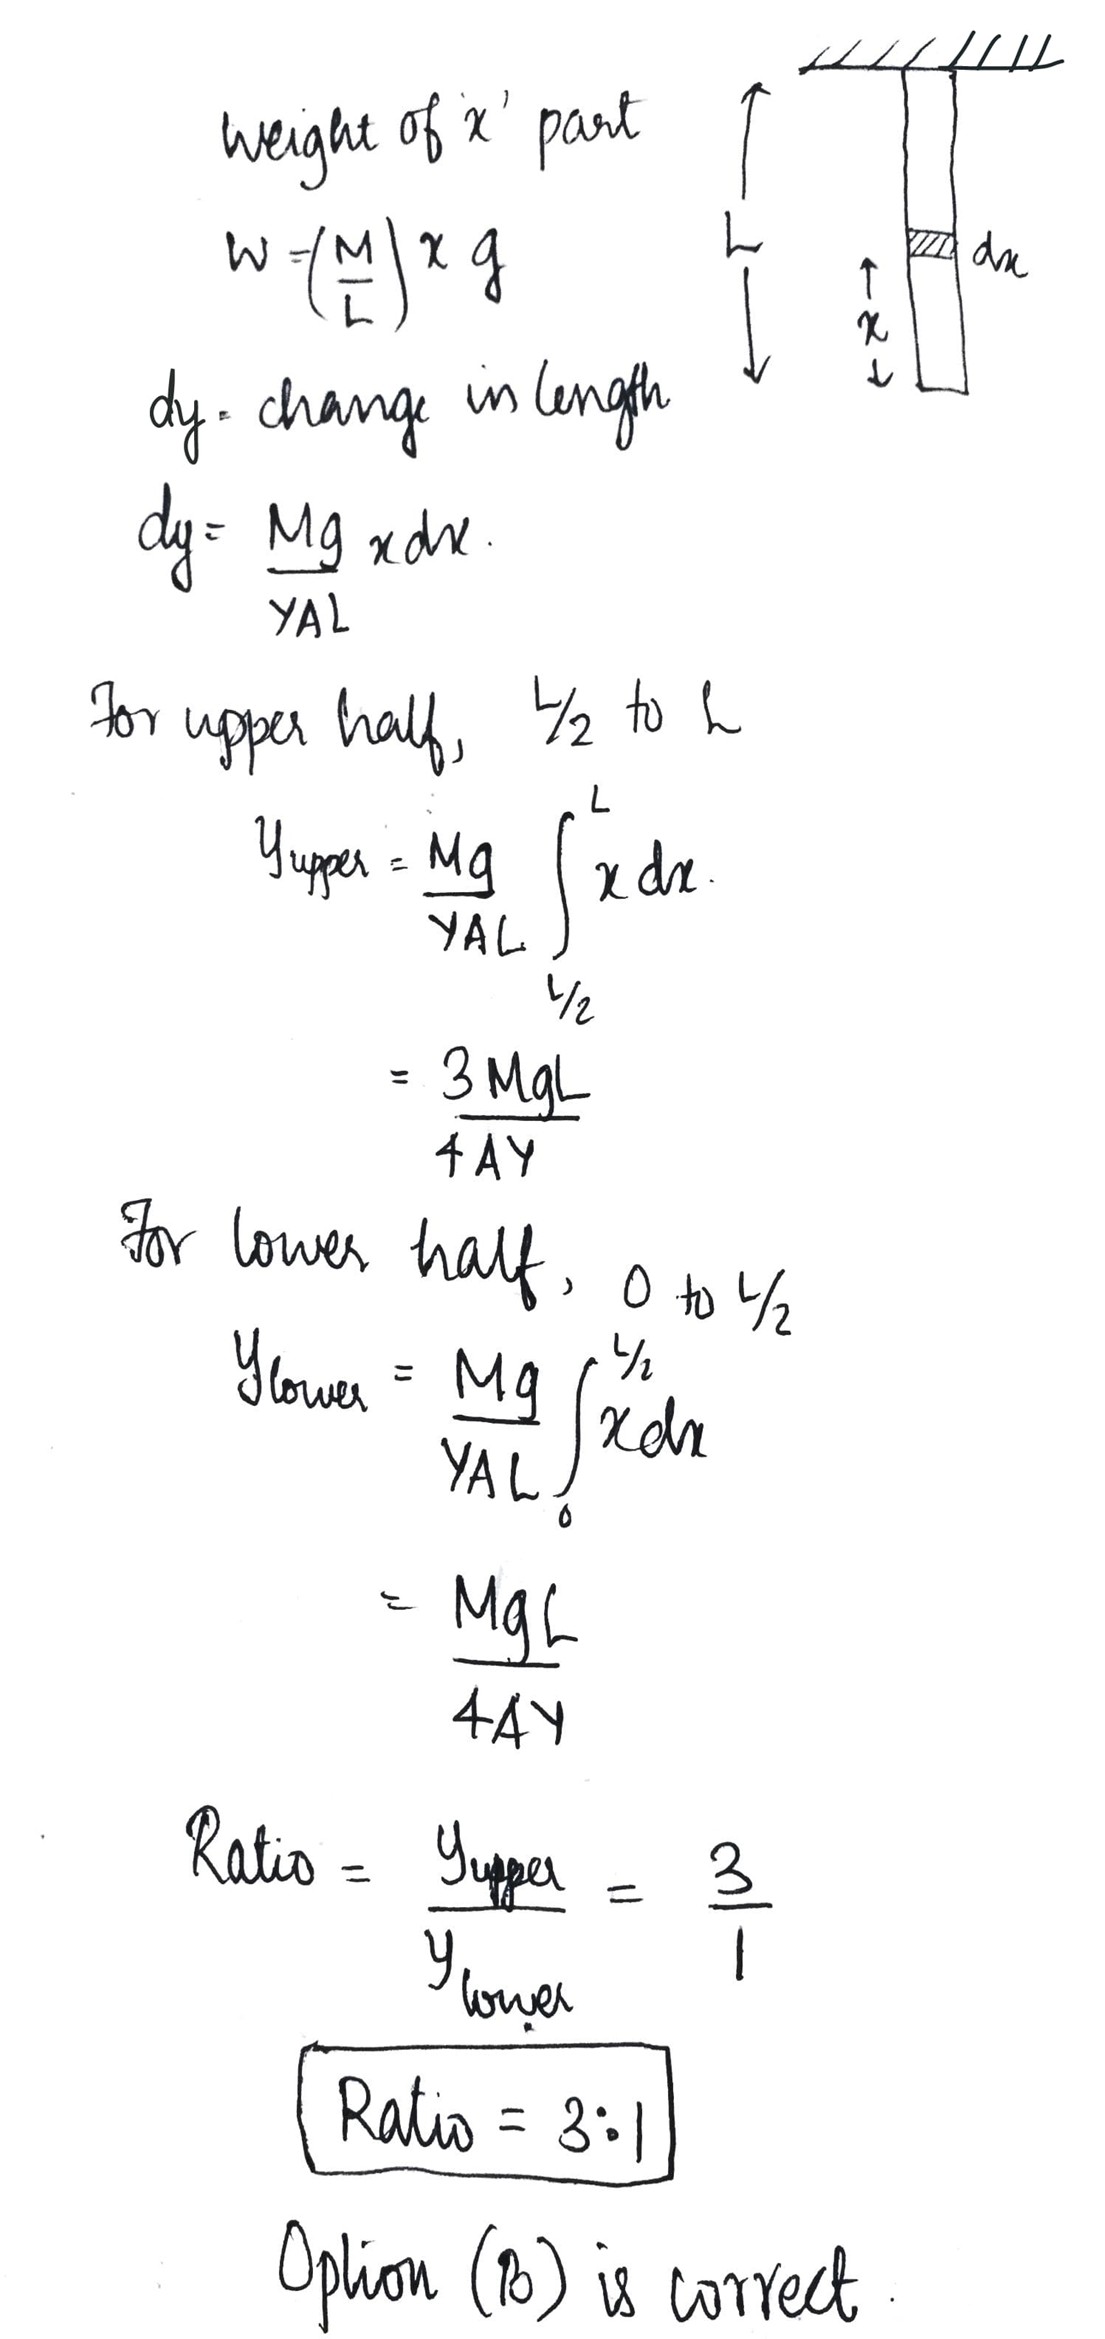 weight of 'x' part
W = (M/L) x g
L
x
dx
dy = change in length
dy = Mg/YAL x dx.
For upper half, L/2 to L
Yupper = Mg/YAL ∫_{L/2}^{L} x dx.
= 3MgL/4AY
For lower half, 0 to L/2
Ylower = Mg/YAL ∫_{0}^{L/2} x dx
= MgL/4AY
Ratio = Yupper/Ylower = 3/1
Ratio = 3:1
Option (B) is correct.